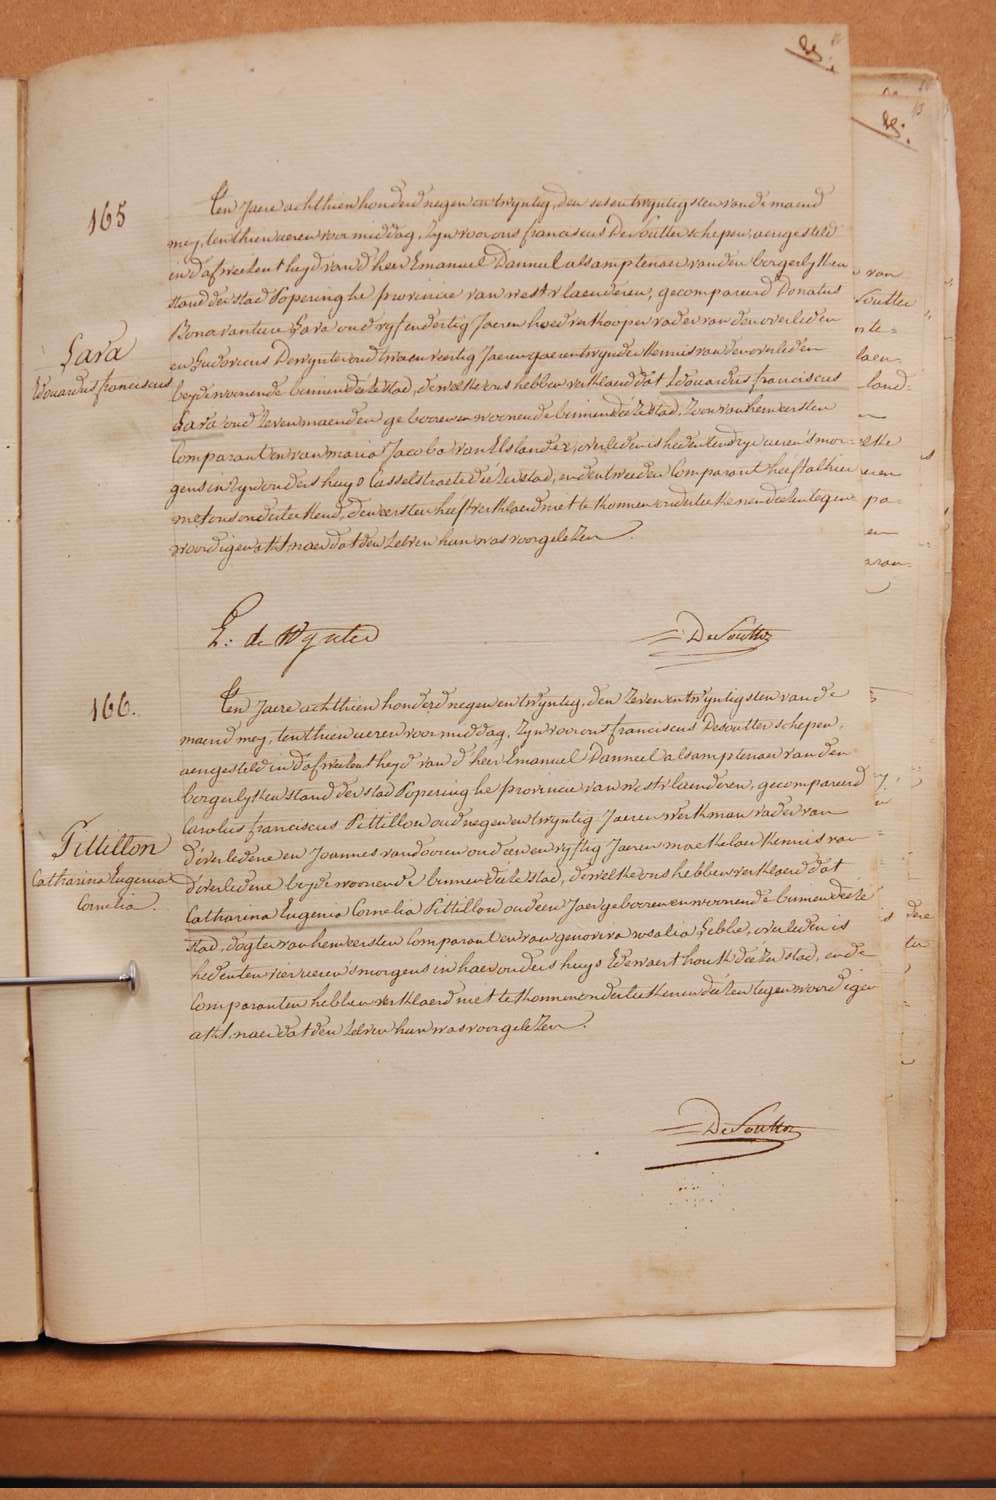 165
Lava
Edouardus franciscus
Ten Jaere achthien honderd negen en twyntig, den sesentwyntigsten van de maend
mey, ten thien ueren voor middag, zyn voor ons franciscus De Soutter schepen, aengesteld
in d'afweesentheyd van d'heer Emanuel Danneel als amptenaer van den borgerlyken
stand der stad Poperinghe provincie van westvlaenderen, gecompareerd Donatus
Bonaventure Lava oud vyf en dertig Jaeren hoedverkooper vader van den overleden
en Ludovicus Dewynter oud twaen veertig Jaeren gaerentwynder kennis van den overleden
beyde woonende binnen deéze stad, dewelke ons hebben verklaerd dat Edouardus franciscus
Lava oud zeven maenden gebooren en woonende binnen deéze stad, zoon van hem eersten
Comparant en van maria Jacoba van Elslander, overleden is heden ten dry ueren 's mor=
gens in zyn ouders huys Casselstraete deézer stad, en den tweeden Comparant heeft alhier
met ons onderteekend, den eersten heeft verklaerd niet te konnen onderteekenen deézen tegen
woordigen akt, naer dat den zelven hun was voorgelezen.
L: de Wynter
De Soutter
166.
Pittillon
Catharina Eugenia
Cornelia.
Ten Jaere achthien honderd negen en twyntig, den zevenentwyntigsten van de
maend mey, ten thien ueren voor middag, zyn voor ons franciscus Desoutter schepen,
aengesteld in d'afweesentheyd van d'heer Emanuel Danneel als amptenaer van den
borgerlyken stand der stad Poperinghe provincie van westvlaenderen, gecompareerd
Carolus franciscus Pittillon oud negen en twyntig Jaeren werkman vader van
d'overledene en Joannes vandooren oud een en vyftig Jaeren maekelaer kennis van
d'overledene beyde woonende binnen deéze stad, dewelke ons hebben verklaerd dat
Catharina Eugenia Cornelia Pittillon oud een Jaer gebooren en woonende binnen deéze
stad, dogter van hem eersten Comparant en van genoveva rosalia Lebbe, overleden is
heden ten vier ueren 's morgens in haer ouders huys Edewaerthoek deézer stad, en de
Comparanten hebben verklaerd niet te konnen onderteekenen deézen tegenwoordigen
akt, naer dat den zelven hun was voorgelezen.
De Soutter